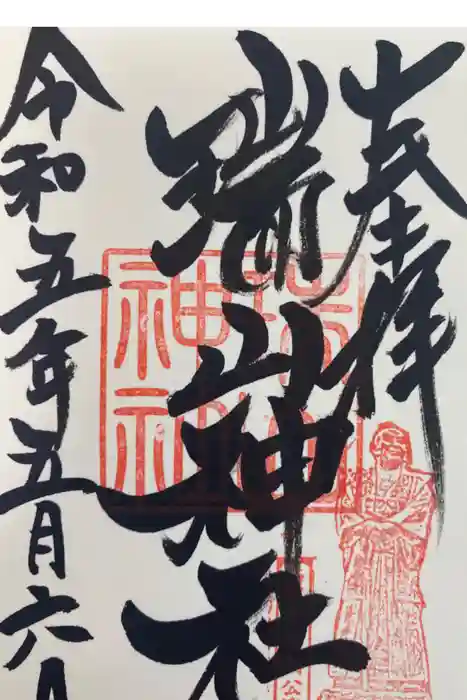 奉拝
瑞山神社
令和五年五月六日